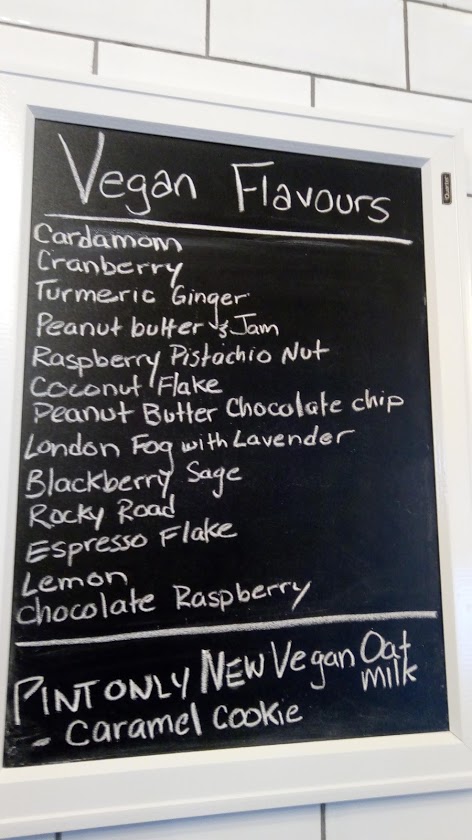 Vegan Flavours
Cardamom
Cranberry
Turmeric Ginger
Peanut butter & Jam
Raspberry Pistachio Nut
Coconut Flake
Peanut Butter Chocolate chip
London Fog with Lavender
Blackberry Sage
Rocky Road
Espresso Flake
Lemon
Chocolate Raspberry
PINT ONLY NEW Vegan Oat milk
- Caramel Cookie
Quartet